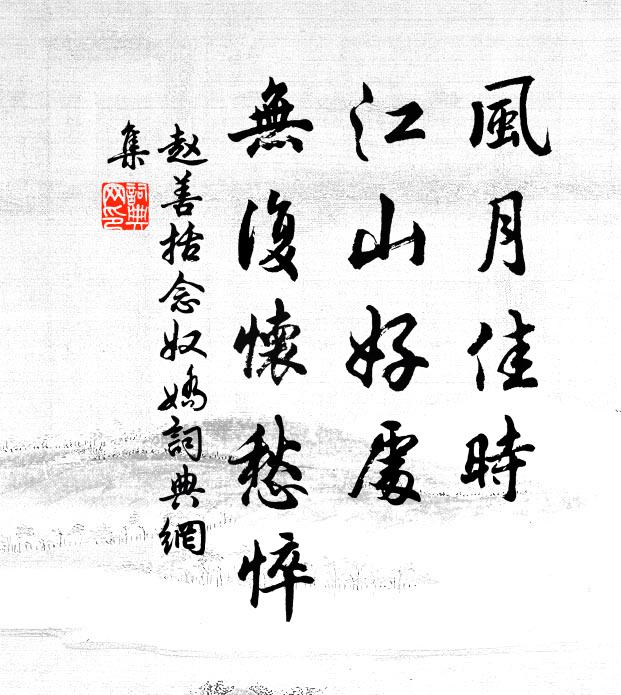 風月佳時
江山好處
無復懷愁悴
赵善括念奴嬌詞典網
集
詞典
网印